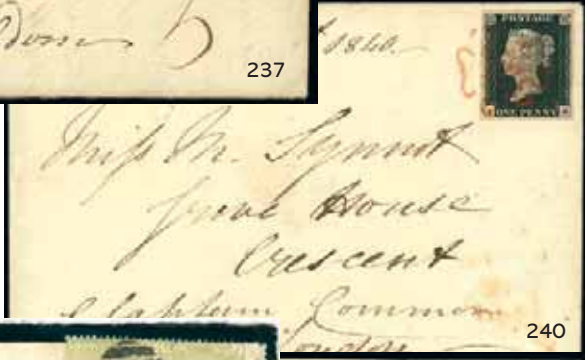 237
1840.
POSTAGE
ONE PENNY
Miss M. Synnot
Grove House
Crescent
Clapham Common
London
240